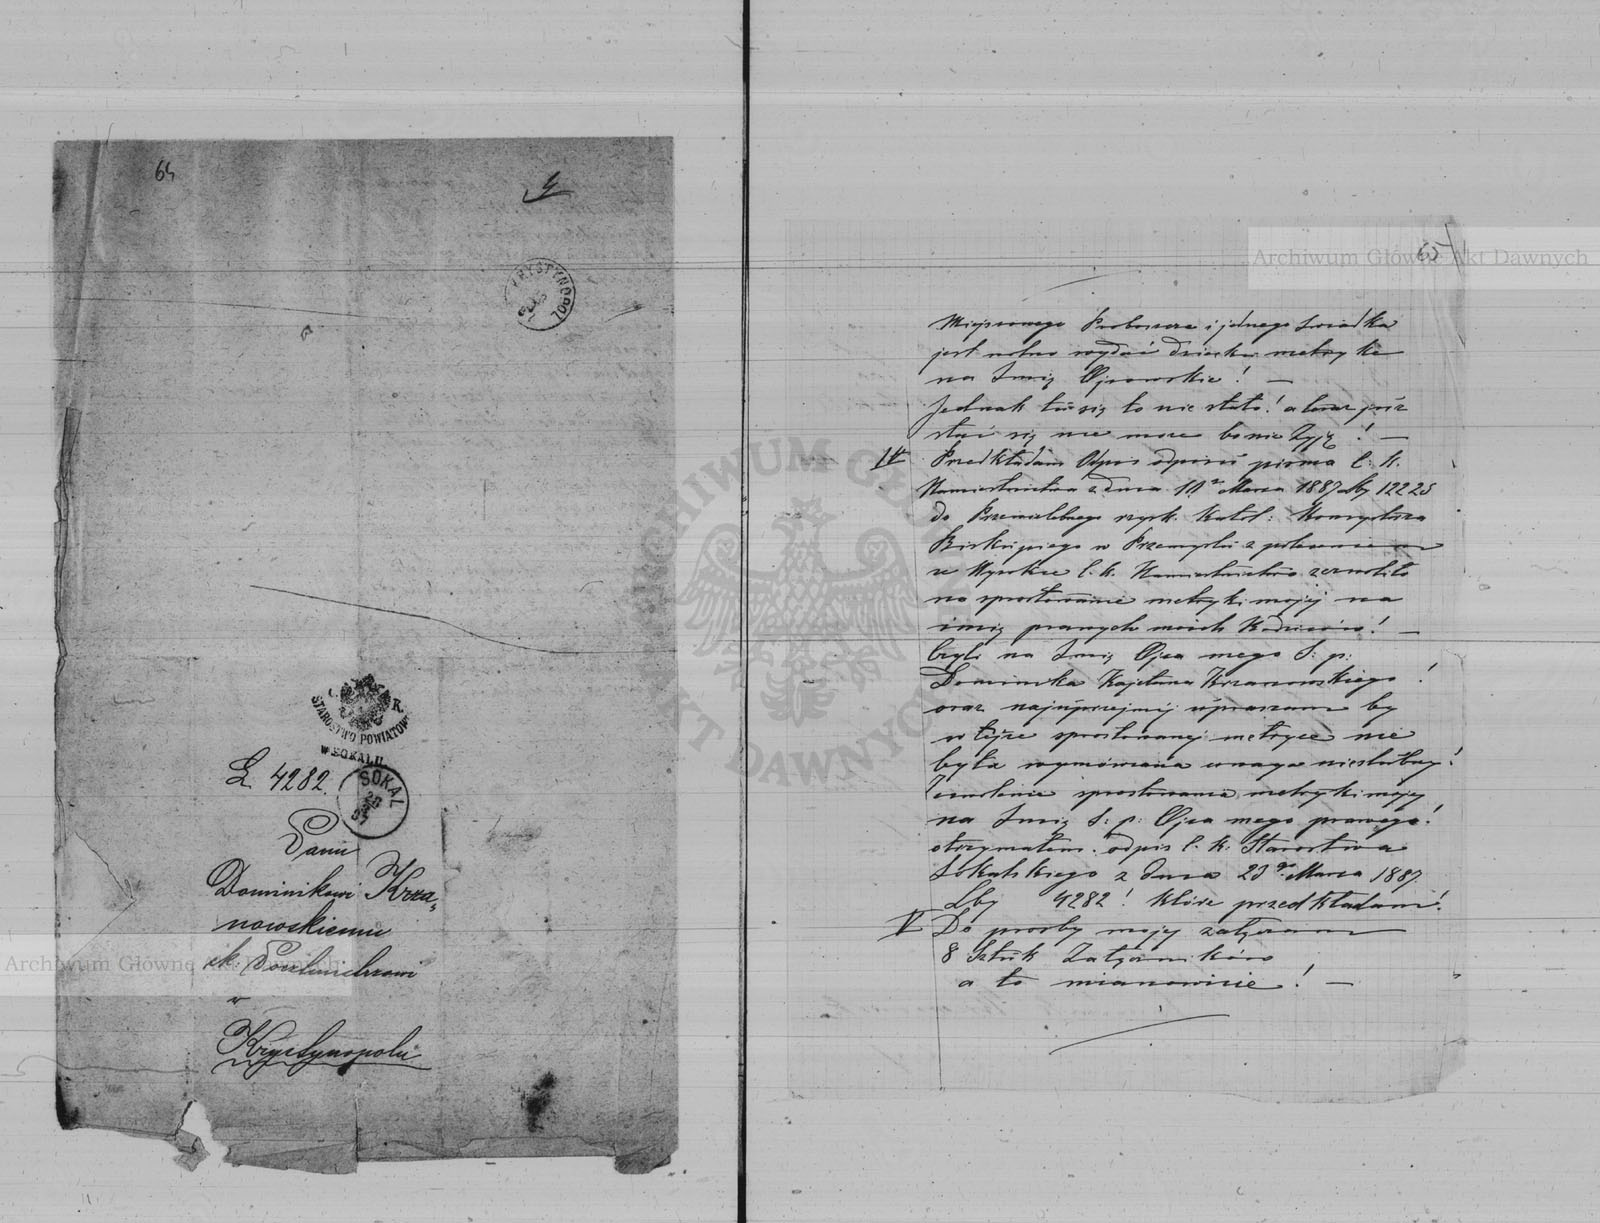 64
KRYSTYNOPOL
C. K.
STAROSTWO POWIATOWE
W SOKALU
L 4282.
SOKAL
Panu
Dominikowi Krza-
nowskiemu
ck: Pocztmistrzowi
w
Krystynopolu
65
Archiwum Główne Akt Dawnych
Archiwum Główne Akt Dawnych
ARCHIWUM GŁÓWNE AKT DAWNYCH
Miejscowego Proboszcza i jednego Swiadka
jest wolno wydać dziecku metrykę
na Imię Ojcowskie! —
Jednak to się to nie stało! a teraz już
stać się nie może bo nie żyją! —
IV Przedkładam Odpis pisma C. K.
Namiestnictwa z dnia Marca 1887 Lby 12225
do Przewielebnego rzysk. Katol: Konsystorza
Biskupiego w Przemyślu z poleceniem
że Wysokie C. K. Namiestnictwo zezwoliło
na sprostowanie metryki mojej na
imię prawych moich Rodziców! —
na Imię Ojca mego S: p:
Dominika Kajetana Krzanowskiego!
oraz najuprzejmiej upraszam by
w tejże sprostowanej metryce nie
była wymówiona uwaga nieślubny!
Zezwolenie sprostowania metryki mojej
na Imię S: p: Ojca mego prawego!
otrzymałem odpis C. K. Starostwa
Sokalskiego z dnia 23go Marca 1887
Lby 4282! które przedkładam!
V Do prośby mojej załączam
8 Sztuk Załączników
a to mianowicie! —